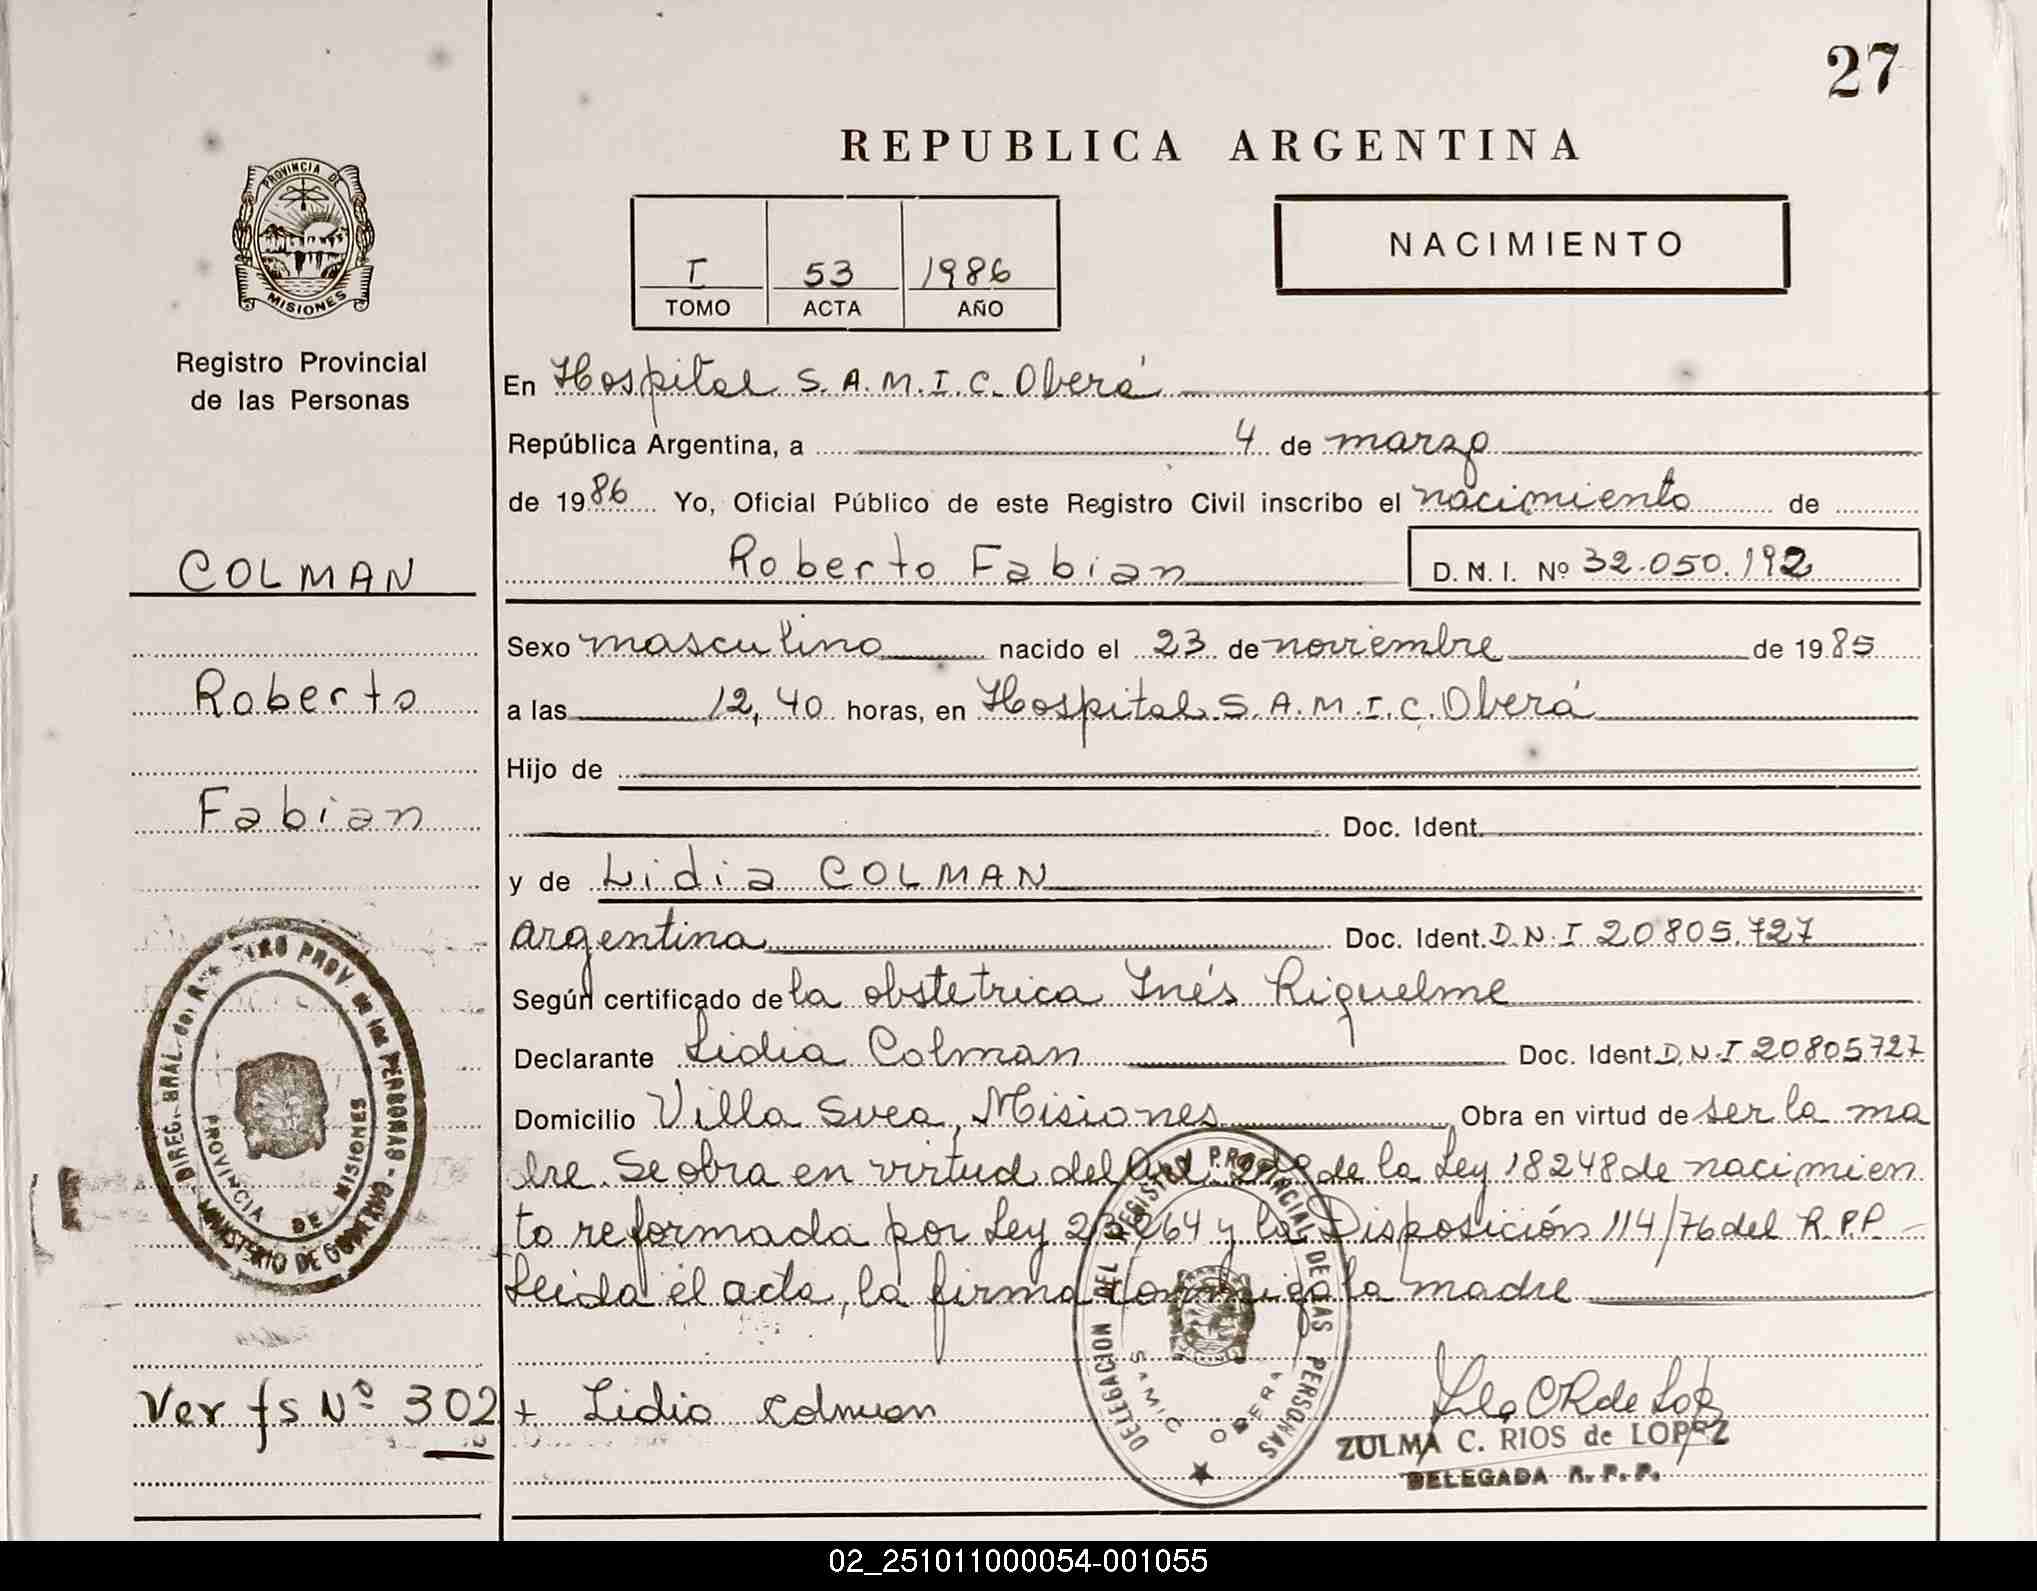 27
REPUBLICA ARGENTINA
PROVINCIA DE
MISIONES
Registro Provincial
de las Personas
I 53 1986
TOMO ACTA AÑO
NACIMIENTO
En Hospital S.A.M.I.C. Oberá
República Argentina, a 4 de marzo
de 1986 Yo, Oficial Público de este Registro Civil inscribo el nacimiento de
Roberto Fabian D.N.I. Nº 32.050.192
COLMAN
Roberto
Fabian
Sexo masculino nacido el 23 de noviembre de 1985
a las 12,40 horas, en Hospital S.A.M.I.C. Oberá
Hijo de
Doc. Ident.
y de Lidia COLMAN
argentina Doc. Ident. D.N.I 20805.727
Según certificado de la obstetrica Inés Riquelme
Declarante Lidia Colman Doc. Ident. D.N.I 20805727
Domicilio Villa Svea, Misiones Obra en virtud de ser la ma
dre. Se obra en virtud del Art. 2do de la Ley 18248 de nacimien
to reformada por Ley 23264 y la Disposición 114/76 del R.P.P. -
Leida el acta, la firma conmigo la madre
DIREC. GRAL. del REGISTRO PROV. de las PERSONAS - MINISTERIO DE GOBIERNO
PROVINCIA DE MISIONES
DELEGACION DEL REGISTRO PROVINCIAL DE LAS PERSONAS
SAMIC OBERA
Ver fs Nº 302
+ Lidia Colman
ZULMA C. RIOS de LOPEZ
DELEGADA R.P.P.
02_251011000054-001055